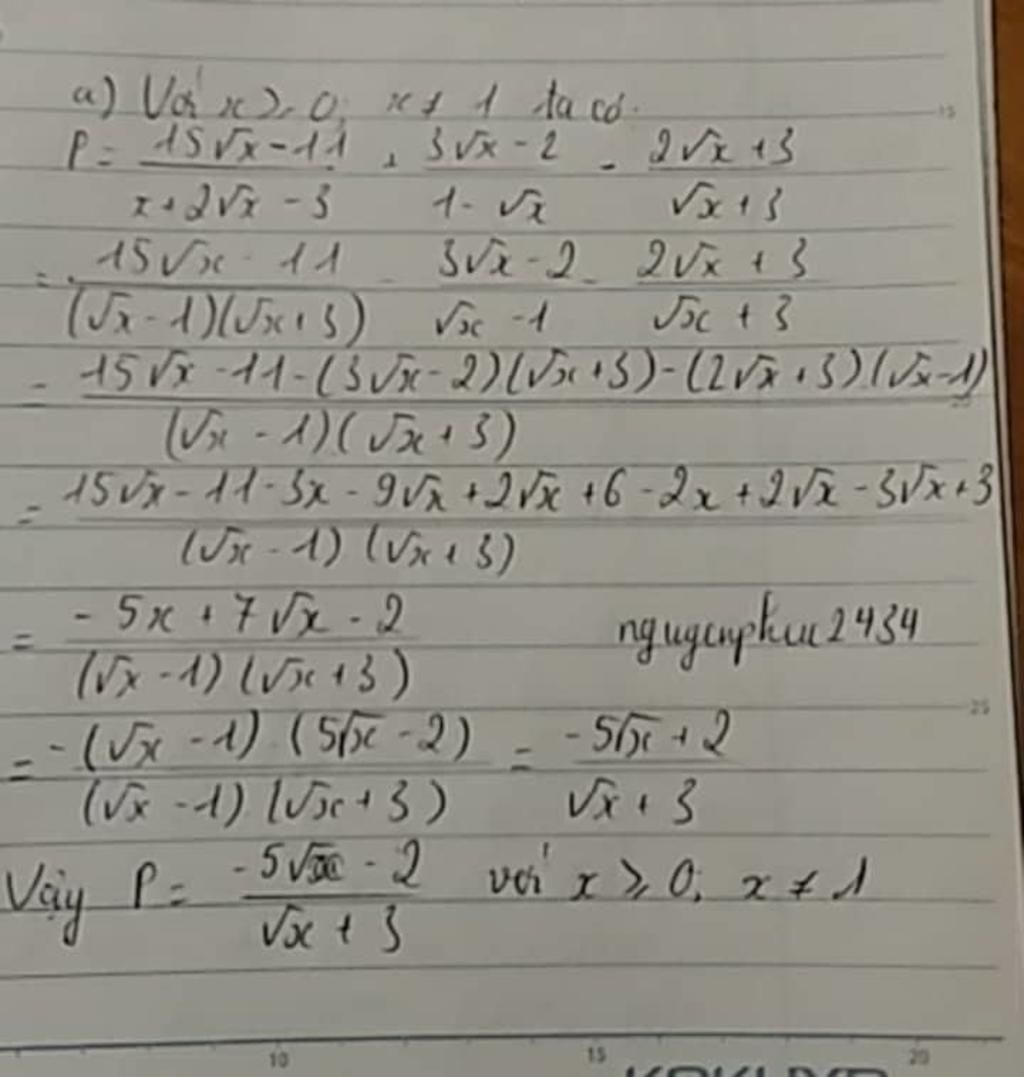 a) Với x ≥ 0; x ≠ 1 ta có.
P = (15√x - 11)/(x + 2√x - 3) + (3√x - 2)/(1 - √x) - (2√x + 3)/(√x + 3)
= (15√x - 11)/((√x - 1)(√x + 3)) - (3√x - 2)/(√x - 1) - (2√x + 3)/(√x + 3)
= (15√x - 11 - (3√x - 2)(√x + 3) - (2√x + 3)(√x - 1))/((√x - 1)(√x + 3))
= (15√x - 11 - 3x - 9√x + 2√x + 6 - 2x + 2√x - 3√x + 3)/((√x - 1)(√x + 3))
= (-5x + 7√x - 2)/((√x - 1)(√x + 3))
nguyenphuc2434
= (-(√x - 1).(5√x - 2))/((√x - 1)(√x + 3)) = (-5√x + 2)/(√x + 3)
Vậy P = (-5√x - 2)/(√x + 3) với x ≥ 0; x ≠ 1
15
25
10 15 20